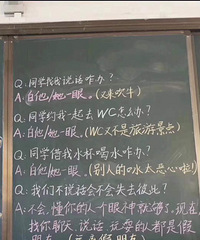 Q:同学找我说话咋办?
A:白他/她一眼。(又来吹牛)
Q:同学约我一起去WC怎么办?
A:白他/她一眼。(WC又不是旅游景点)
Q:同学借我水杯喝水咋办?
A:白他/她一眼。(别人的口水太恶心啦!)
Q:我们不说话会不会失去彼此?
A:不会,懂你的人一个眼神就够了。现在
找你聊天、说话、玩耍的人都是假
朋友